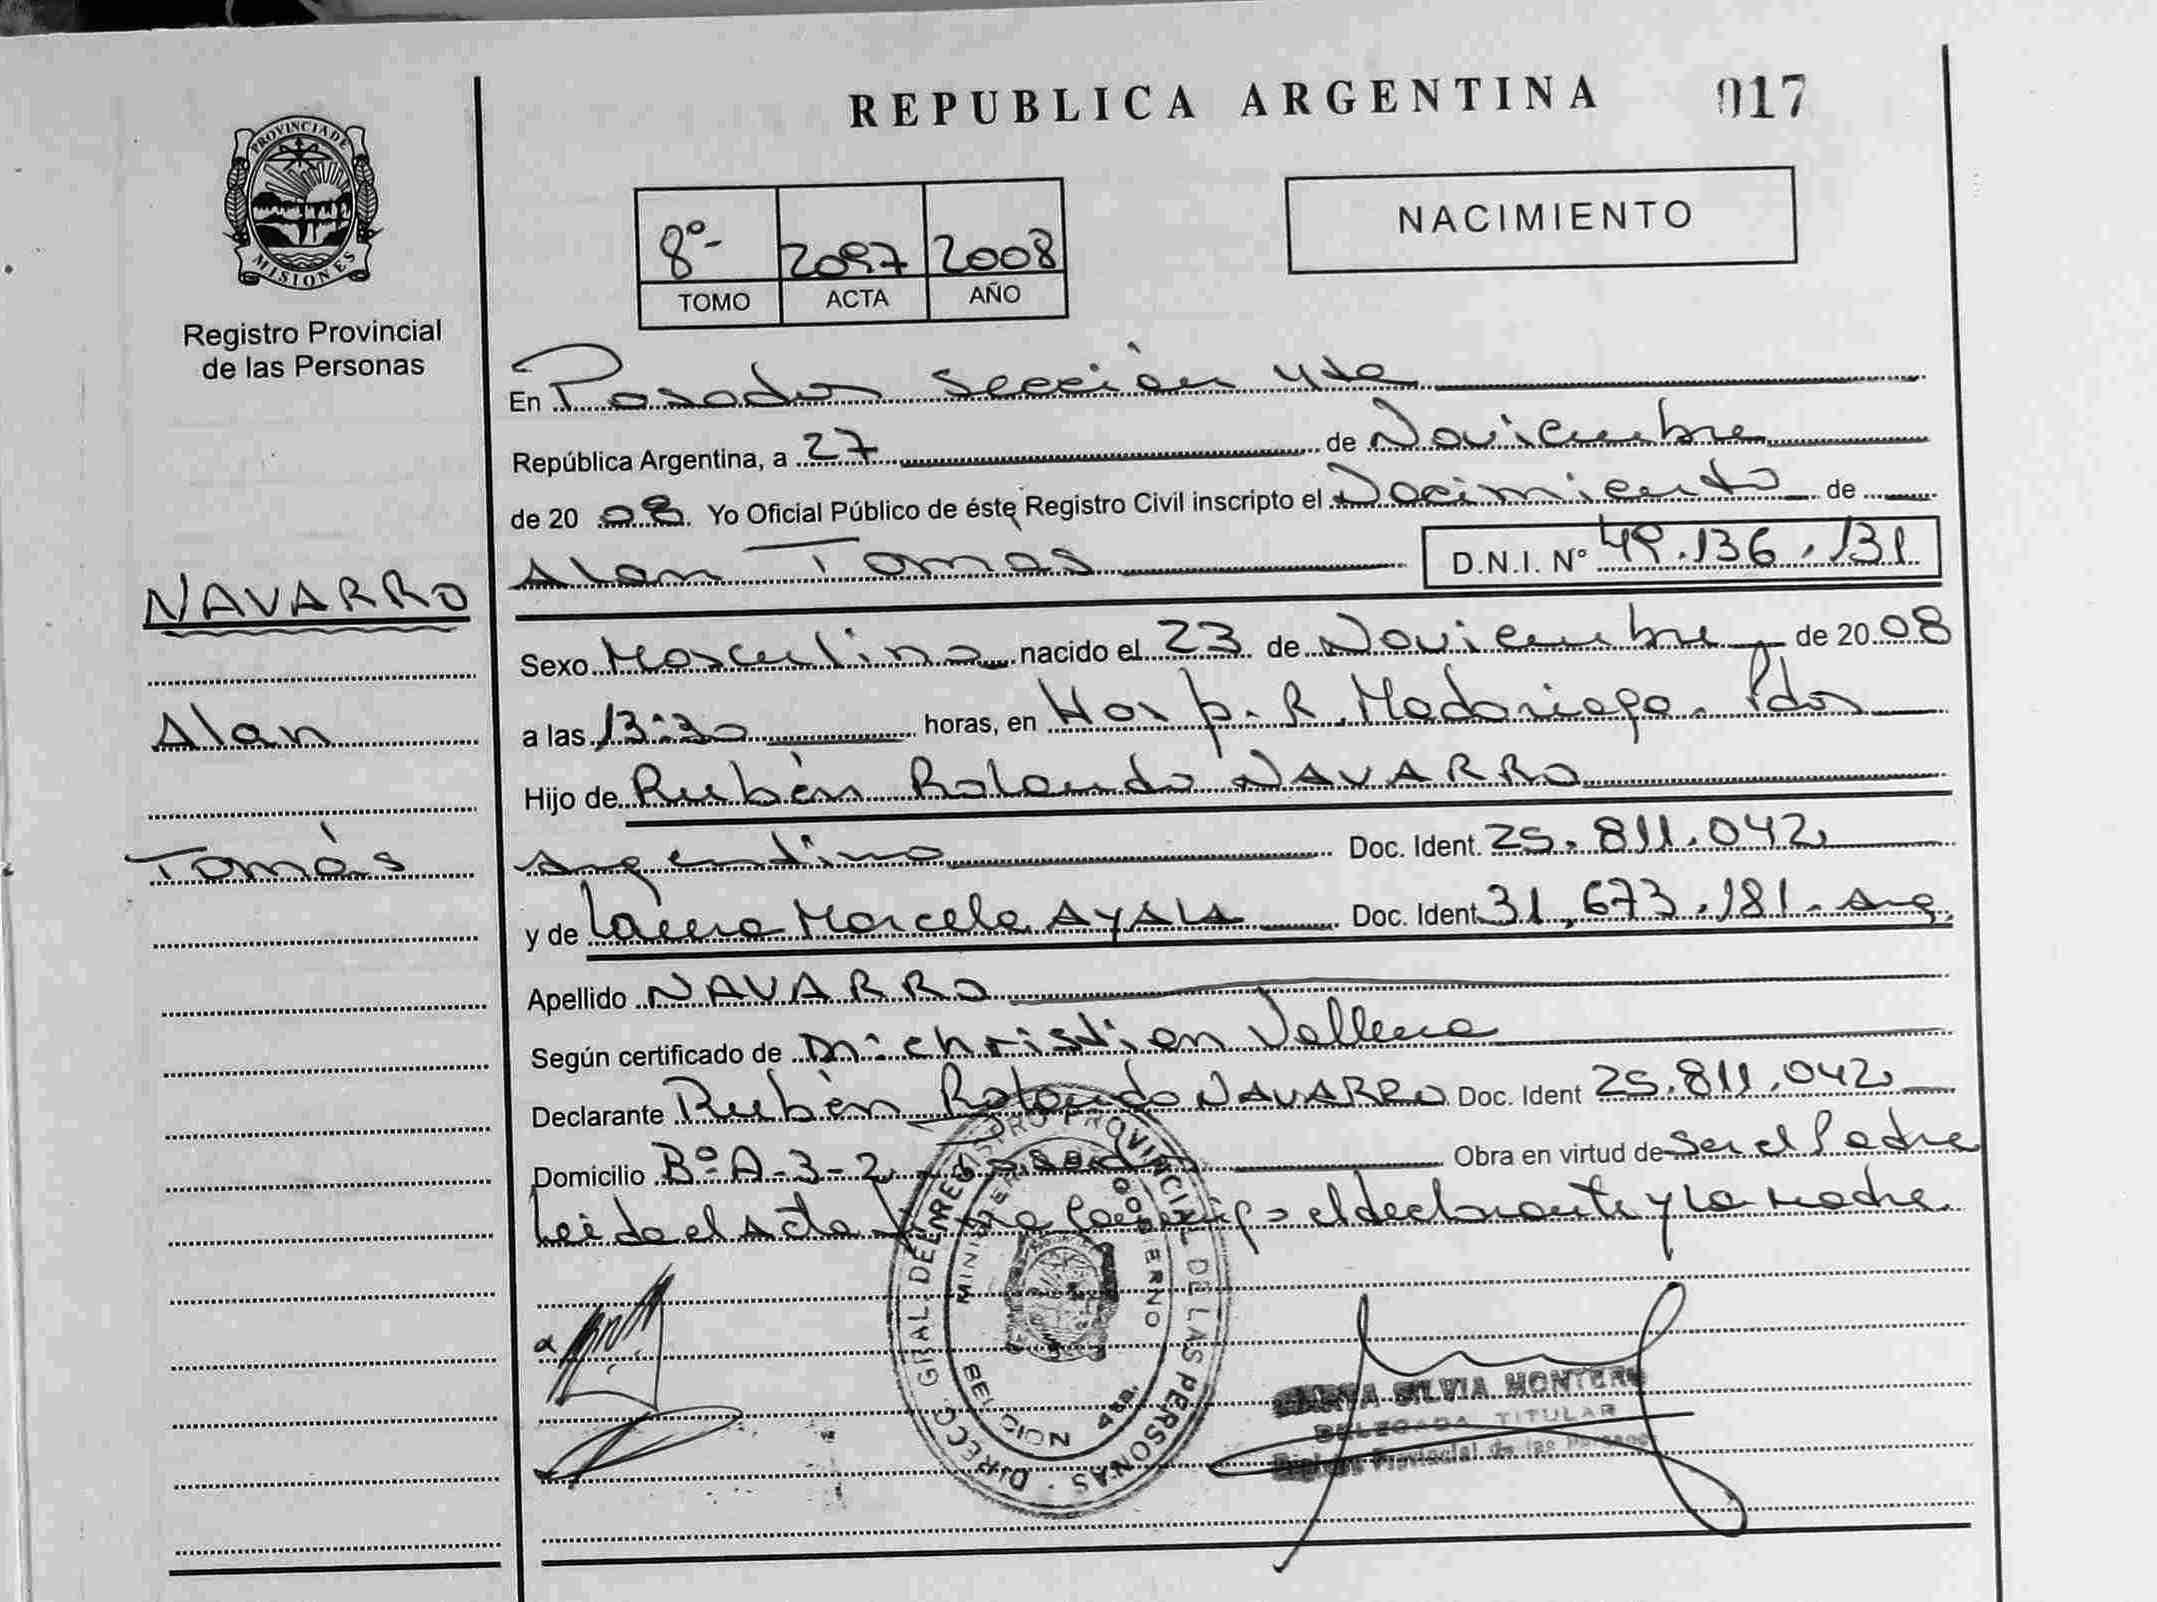 REPUBLICA ARGENTINA 017
PROVINCIA DE MISIONES
Registro Provincial
de las Personas
NACIMIENTO
8º- 2097 2008
TOMO ACTA AÑO
En Posadas Sección 4ta
República Argentina, a 27 de Noviembre
de 20 08 Yo Oficial Público de éste Registro Civil inscripto el Nacimiento de
Alan Tomás D.N.I. Nº 49.136.131
NAVARRO
Alan
Tomás
Sexo Masculino nacido el 23 de Noviembre de 20 08
a las 13:30 horas, en Hosp. R. Madariaga. Pdas
Hijo de Rubén Rolando NAVARRO
Argentino Doc. Ident. 25.811.042
y de Laura Marcela AYALA Doc. Ident. 31.673.181. Arg.
Apellido NAVARRO
Según certificado de
Declarante Rubén Rolando NAVARRO Doc. Ident 25.811.042
Domicilio Bº A-3-2 Obra en virtud de Ser el Padre
Leída el Acta el declarante y la madre.
DIRECC. GRAL DEL REGISTRO PROVINCIAL DE LAS PERSONAS
MINISTERIO GOBIERNO
SILVIA MONTERO
DELEGADA TITULAR
Registro Provincial de las Personas